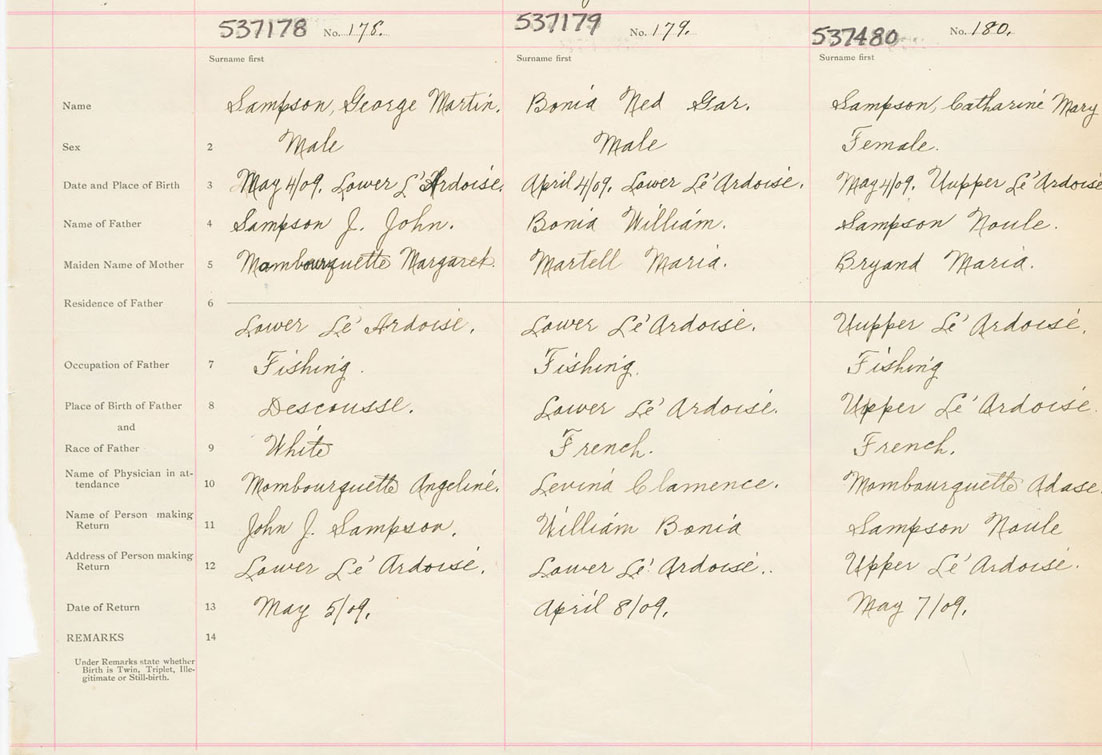 537178 No. 178. 537179 No. 179. 537480 No. 180.
Surname first Surname first Surname first
Name Sampson, George Martin. Bonia Ned Gar. Sampson, Catharine Mary
Sex 2 Male Male Female.
Date and Place of Birth 3 May 4/09. Lower L'Ardoise. April 4/09. Lower Le'Ardoise. May 4/09. Uupper Le'Ardoise
Name of Father 4 Sampson J. John. Bonia William. Sampson Noule.
Maiden Name of Mother 5 Mambourquette Margaret. Martell Maria. Bryand Maria.
Residence of Father 6
Lower Le' Ardoise. Lower Le' Ardoise. Uupper Le' Ardoise.
Occupation of Father 7 Fishing. Fishing. Fishing
Place of Birth of Father 8 Descousse. Lower Le' Ardoise. Upper Le' Ardoise.
and
Race of Father 9 White French. French.
Name of Physician in at-
tendance 10 Mombourquette Angeline. Levina Clamence. Mombourquette Adase.
Name of Person making
Return 11 John J. Sampson. William Bonia Sampson Noule
Address of Person making
Return 12 Lower Le' Ardoise. Lower Le' Ardoise.. Upper Le' Ardoise.
Date of Return 13 May 5/09. April 8/09. May 7/09.
REMARKS 14
Under Remarks state whether
Birth is Twin, Triplet, Ille-
gitimate or Still-birth.